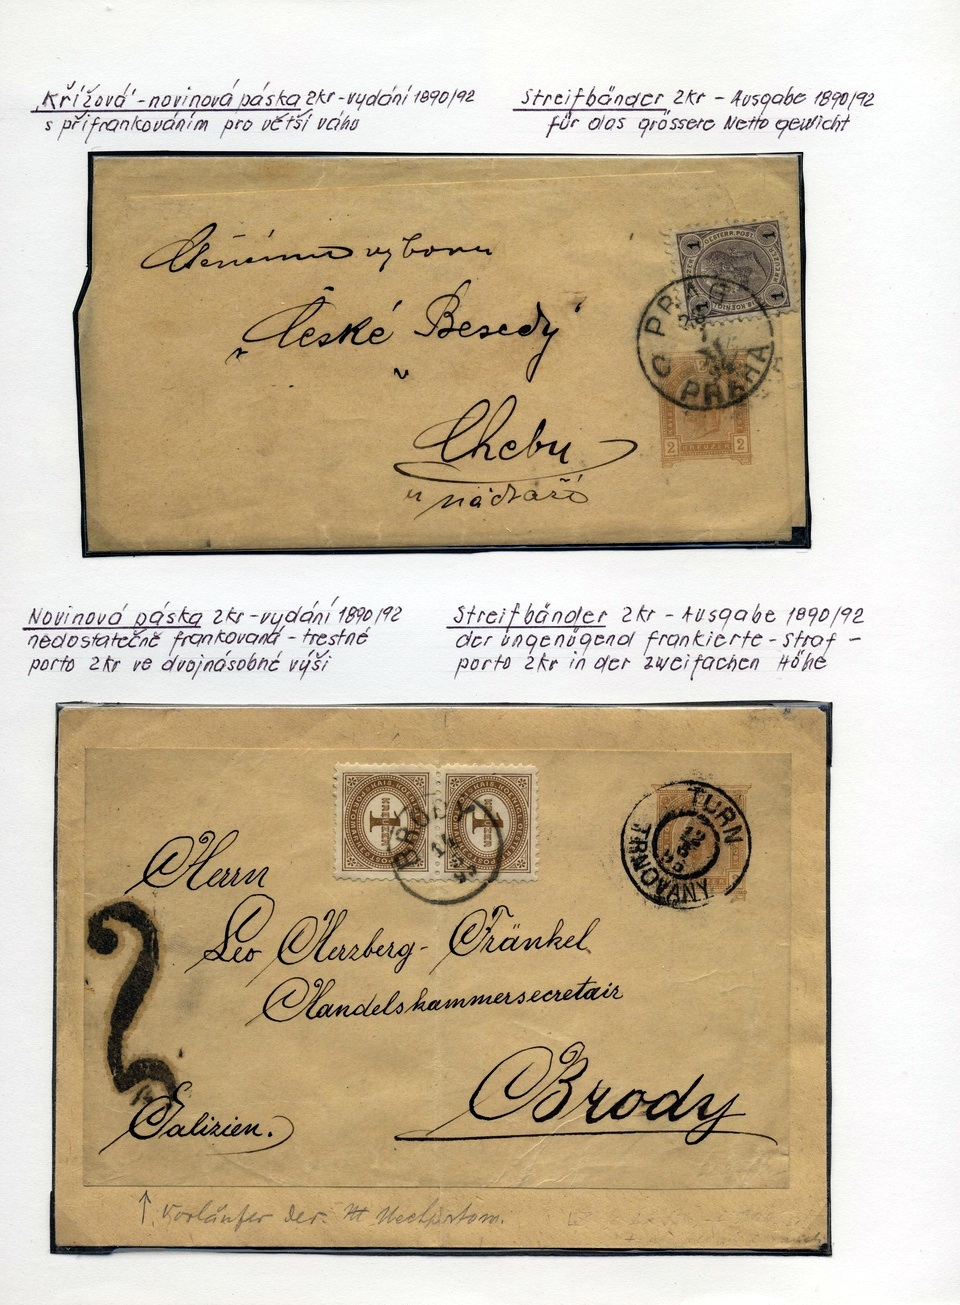 „Křížová“ - novinová páska 2kr - vydání 1890/92
s přifrankováním pro větší váhu
Streifbänder 2kr - Ausgabe 1890/92
für das grössere Netto gewicht
výboru
„České Besedy“
v
Chebu
u nádraží
OESTERR. POST
1 1 1 1
PRAG
PRAHA
2 KREUZER 2
Novinová páska 2kr - vydání 1890/92
nedostatečně frankovaná - trestné
porto 2kr ve dvojnásobné výši
Streifbänder 2kr - Ausgabe 1890/92
der ungenügend frankierte - Straf -
porto 2kr in der zweifachen Höhe
1 KREUZER
1 KREUZER
BRODY
TURN
TRNOVANY
Herrn
Leo Herzberg - Fränkel
Handelskammersecretair
Brody
Galizien.
2
Vorläufer der